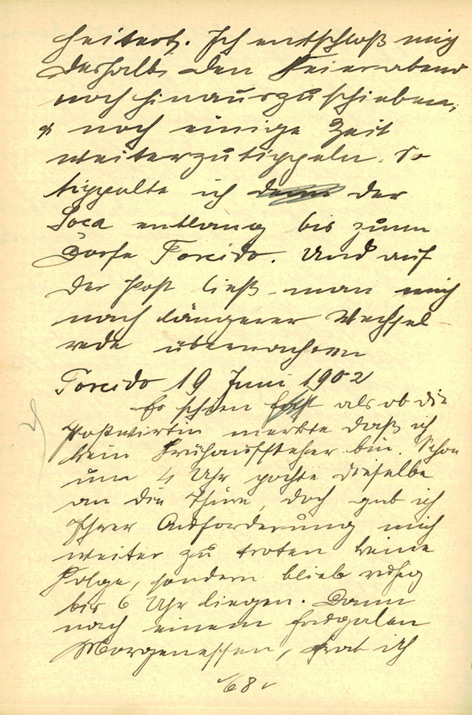 heitert. Ich entschloß mich
deshalb den Feierabend
noch hinauszuschieben,
& noch einige Zeit
weiterzutippeln. So
tippelte ich der
Loca entlang bis zum
Dorfe Torcido. Und auf
der Post ließ man mich
nach längerer Wechsel-
rede übernachten
Torcido 19 Juni 1902
Es schien als ob die
Postwirtin merkte daß ich
kein Frühaufsteher bin. Schon
um 4 Uhr pochte dieselbe
an die Thüre, doch gab ich
Ihrer Aufforderung mich
weiter zu trollen keine
Folge, sondern blieb ruhig
bis 6 Uhr liegen. Dann
nach einem frugalen
Morgenessen, trat ich
68